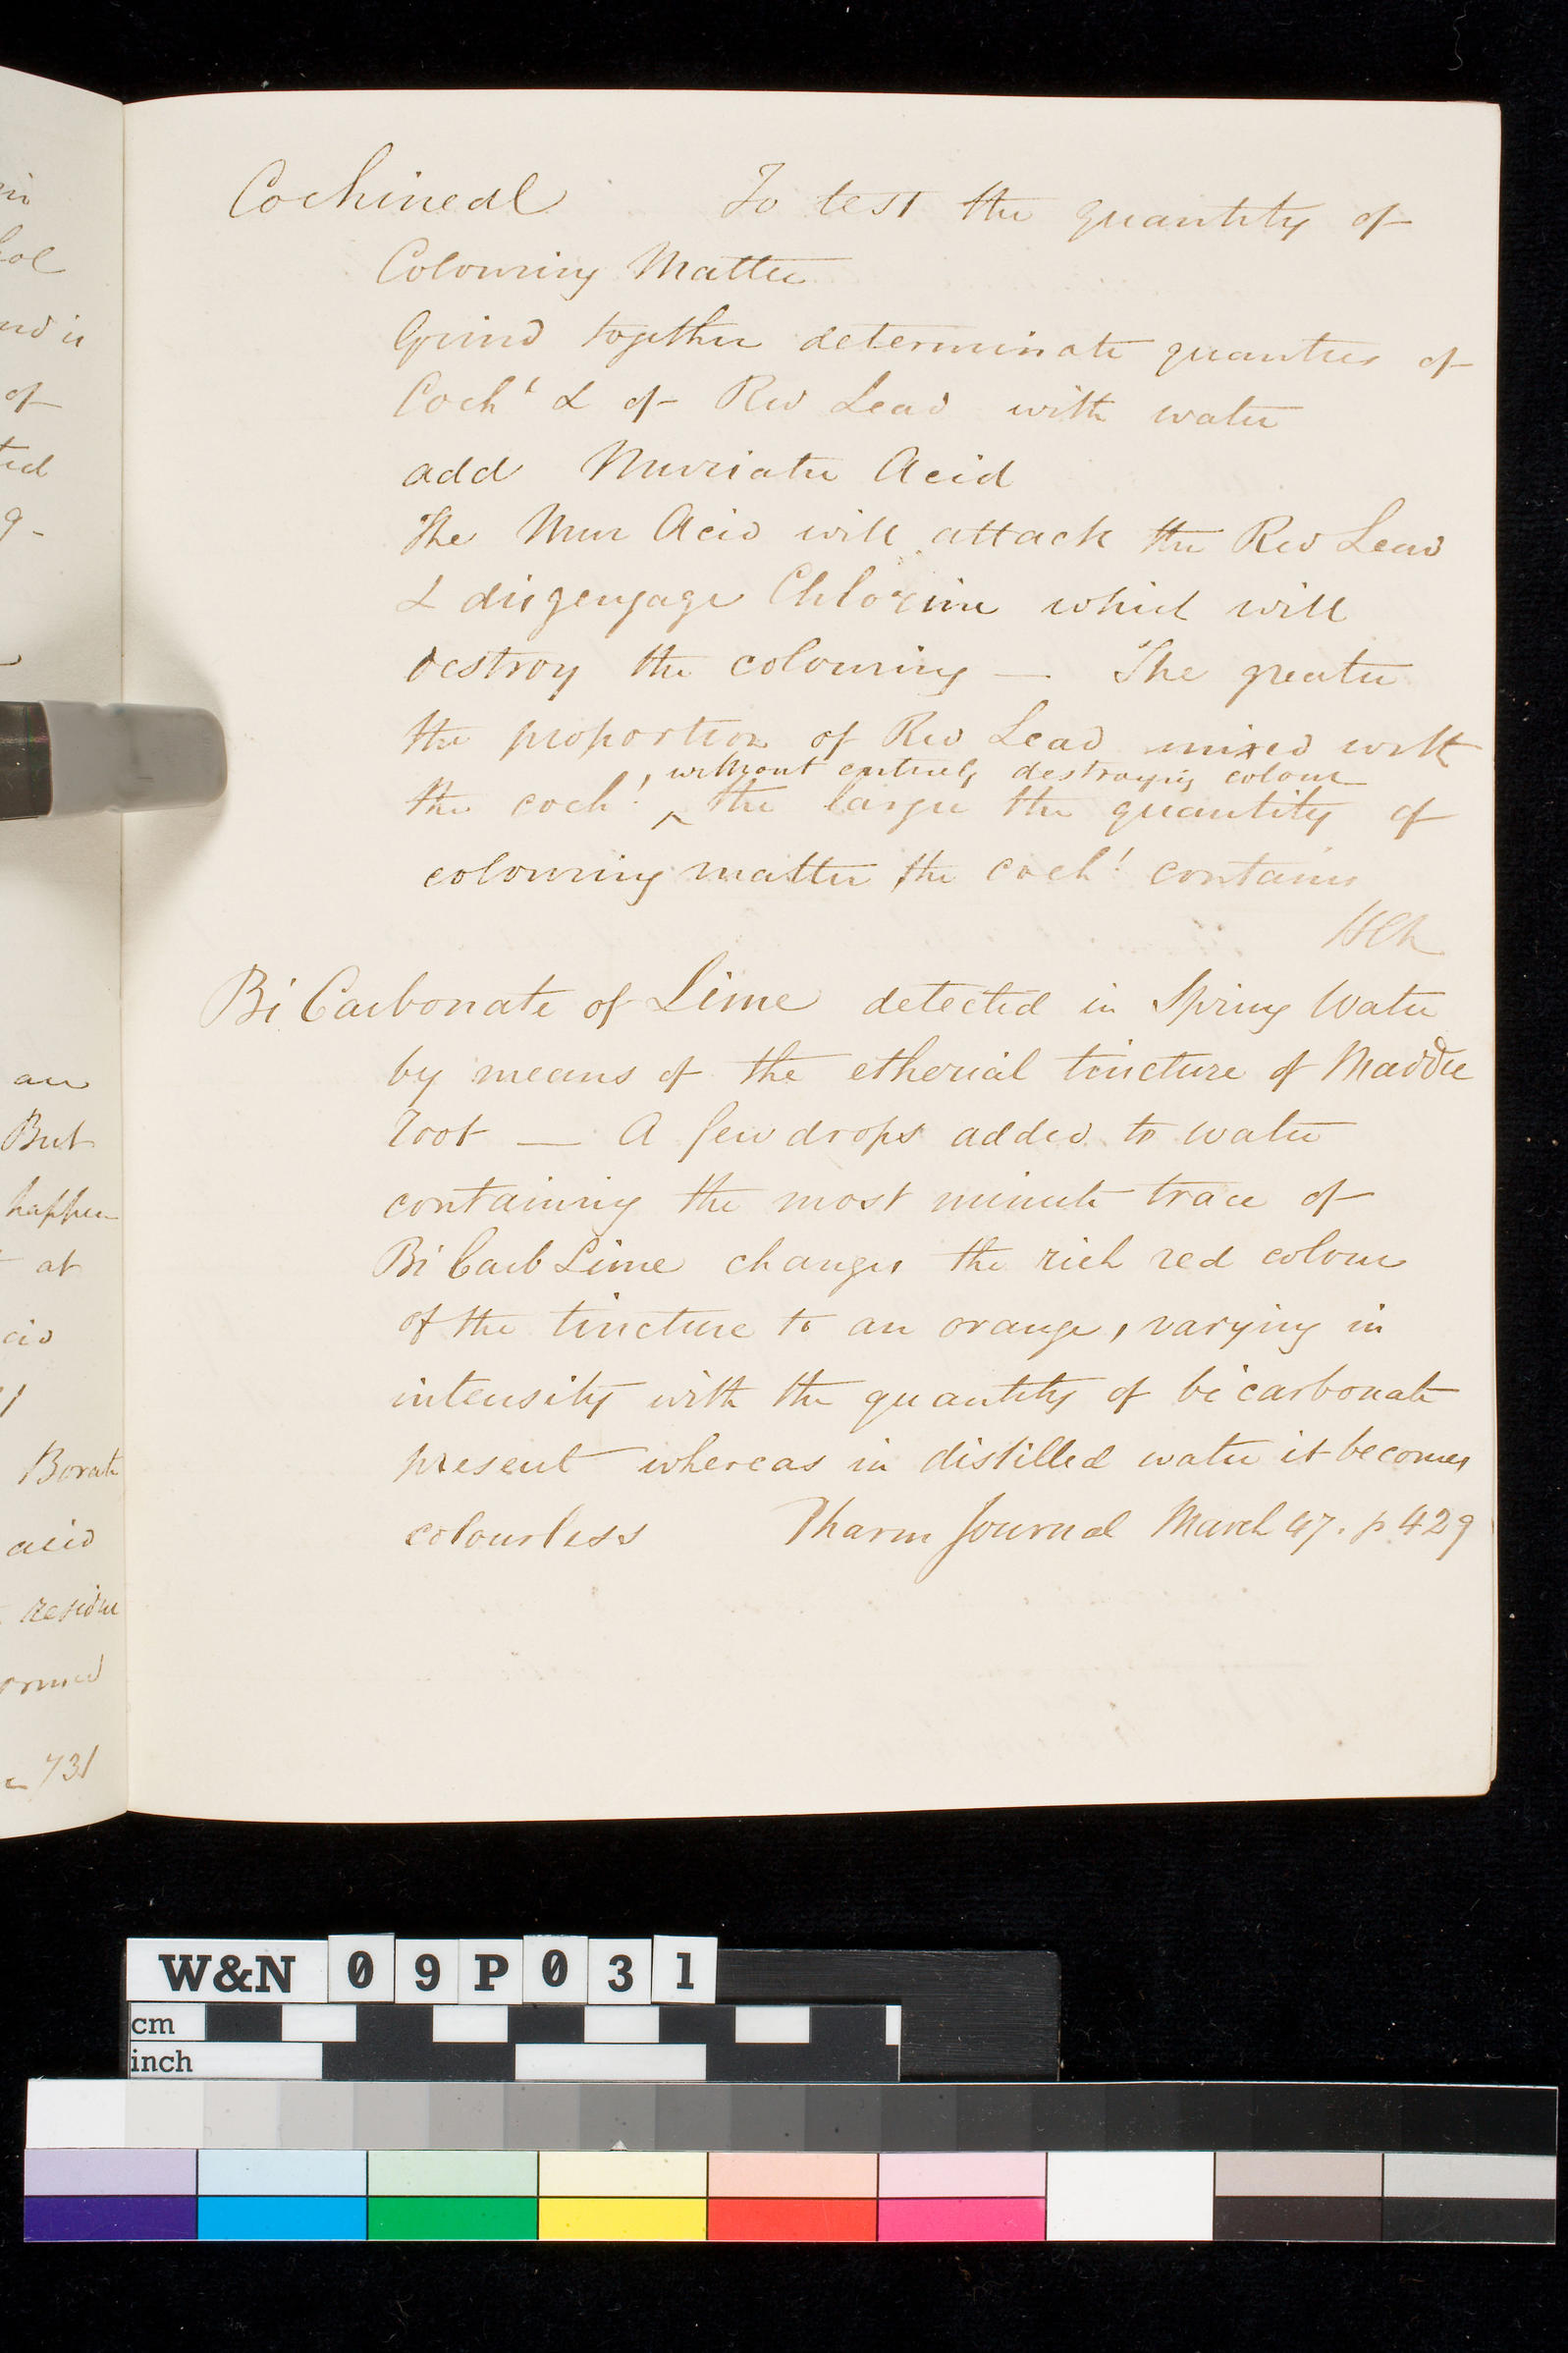 in
of
ted
9 -
an
But
happen
at
Borate
acid
residue
731
Cochineal To test the quantity of
Colouring Matter
Grind together determinate quantities of
Coch^l & of Red Lead with water
add Muriatic Acid
The Mur Acid will attack the Red Lead
& disgengage Chlorine which will
destroy the colouring — The greater
the proportion of Red Lead mixed with
, without entirely destroying colour
the coch^l ^ the larger the quantity of
colouring matter the coch^l contains
Bi Carbonate of Lime detected in Spring Water
by means of the etherial tincture of Madder
root — A few drops added to water
containing the most minute trace of
Bi Carb Lime changes the rich red colour
of the tincture to an orange, varying in
intensity with the quantity of bicarbonate
present whereas in distilled water it becomes
colourless Pharm Journal March 47. p 429
W&N 09P031
cm
inch